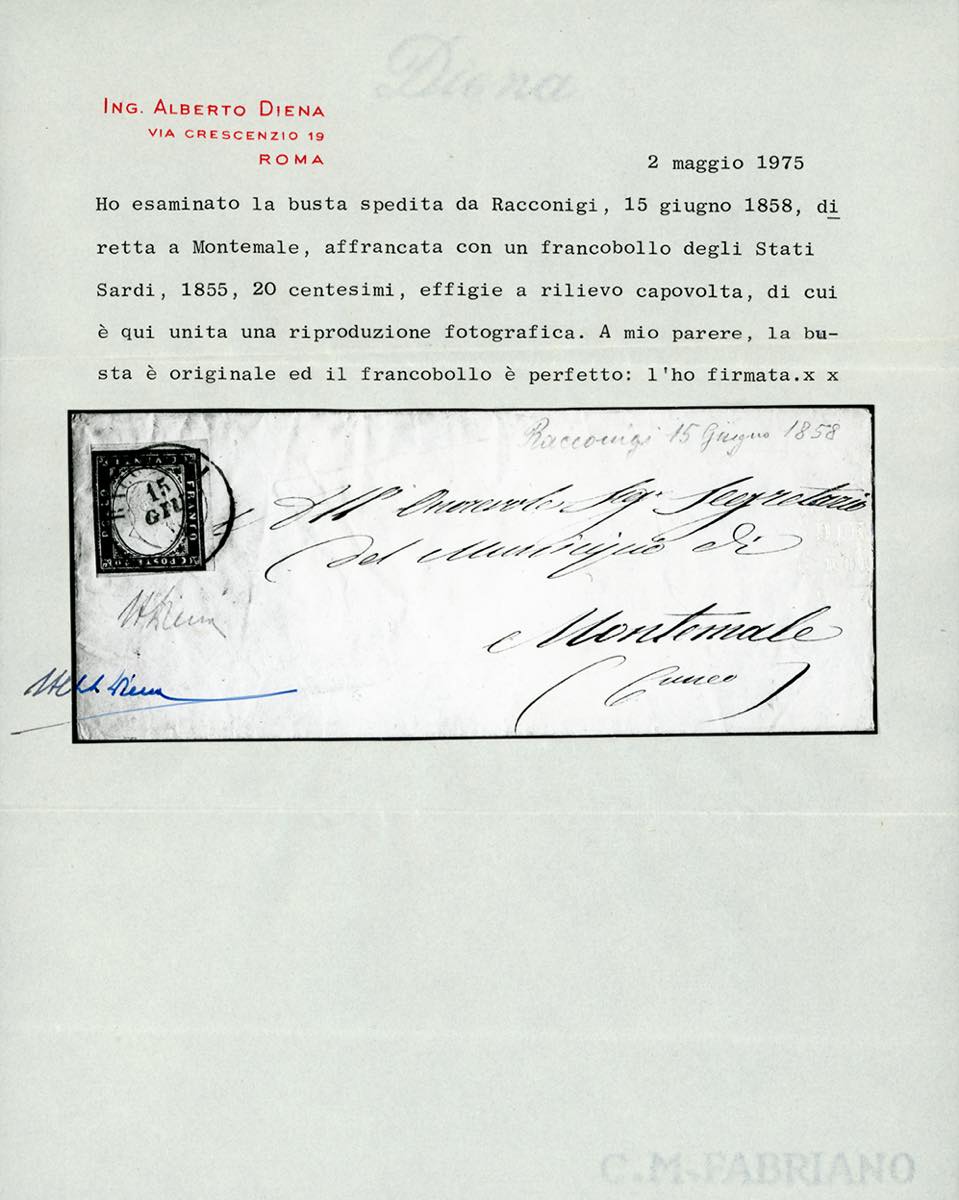 Diena
ING. ALBERTO DIENA
VIA CRESCENZIO 19
ROMA
2 maggio 1975
Ho esaminato la busta spedita da Racconigi, 15 giugno 1858, di
retta a Montemale, affrancata con un francobollo degli Stati
Sardi, 1855, 20 centesimi, effigie a rilievo capovolta, di cui
è qui unita una riproduzione fotografica. A mio parere, la bu-
sta è originale ed il francobollo è perfetto: l'ho firmata.x x
Racconigi 15 Giugno 1858
15
GIU
FRANCO
POSTE
All' Onorevole Sigr Segretario
del Municipio di
Montemale
(Cuneo)
C.M.FABRIANO